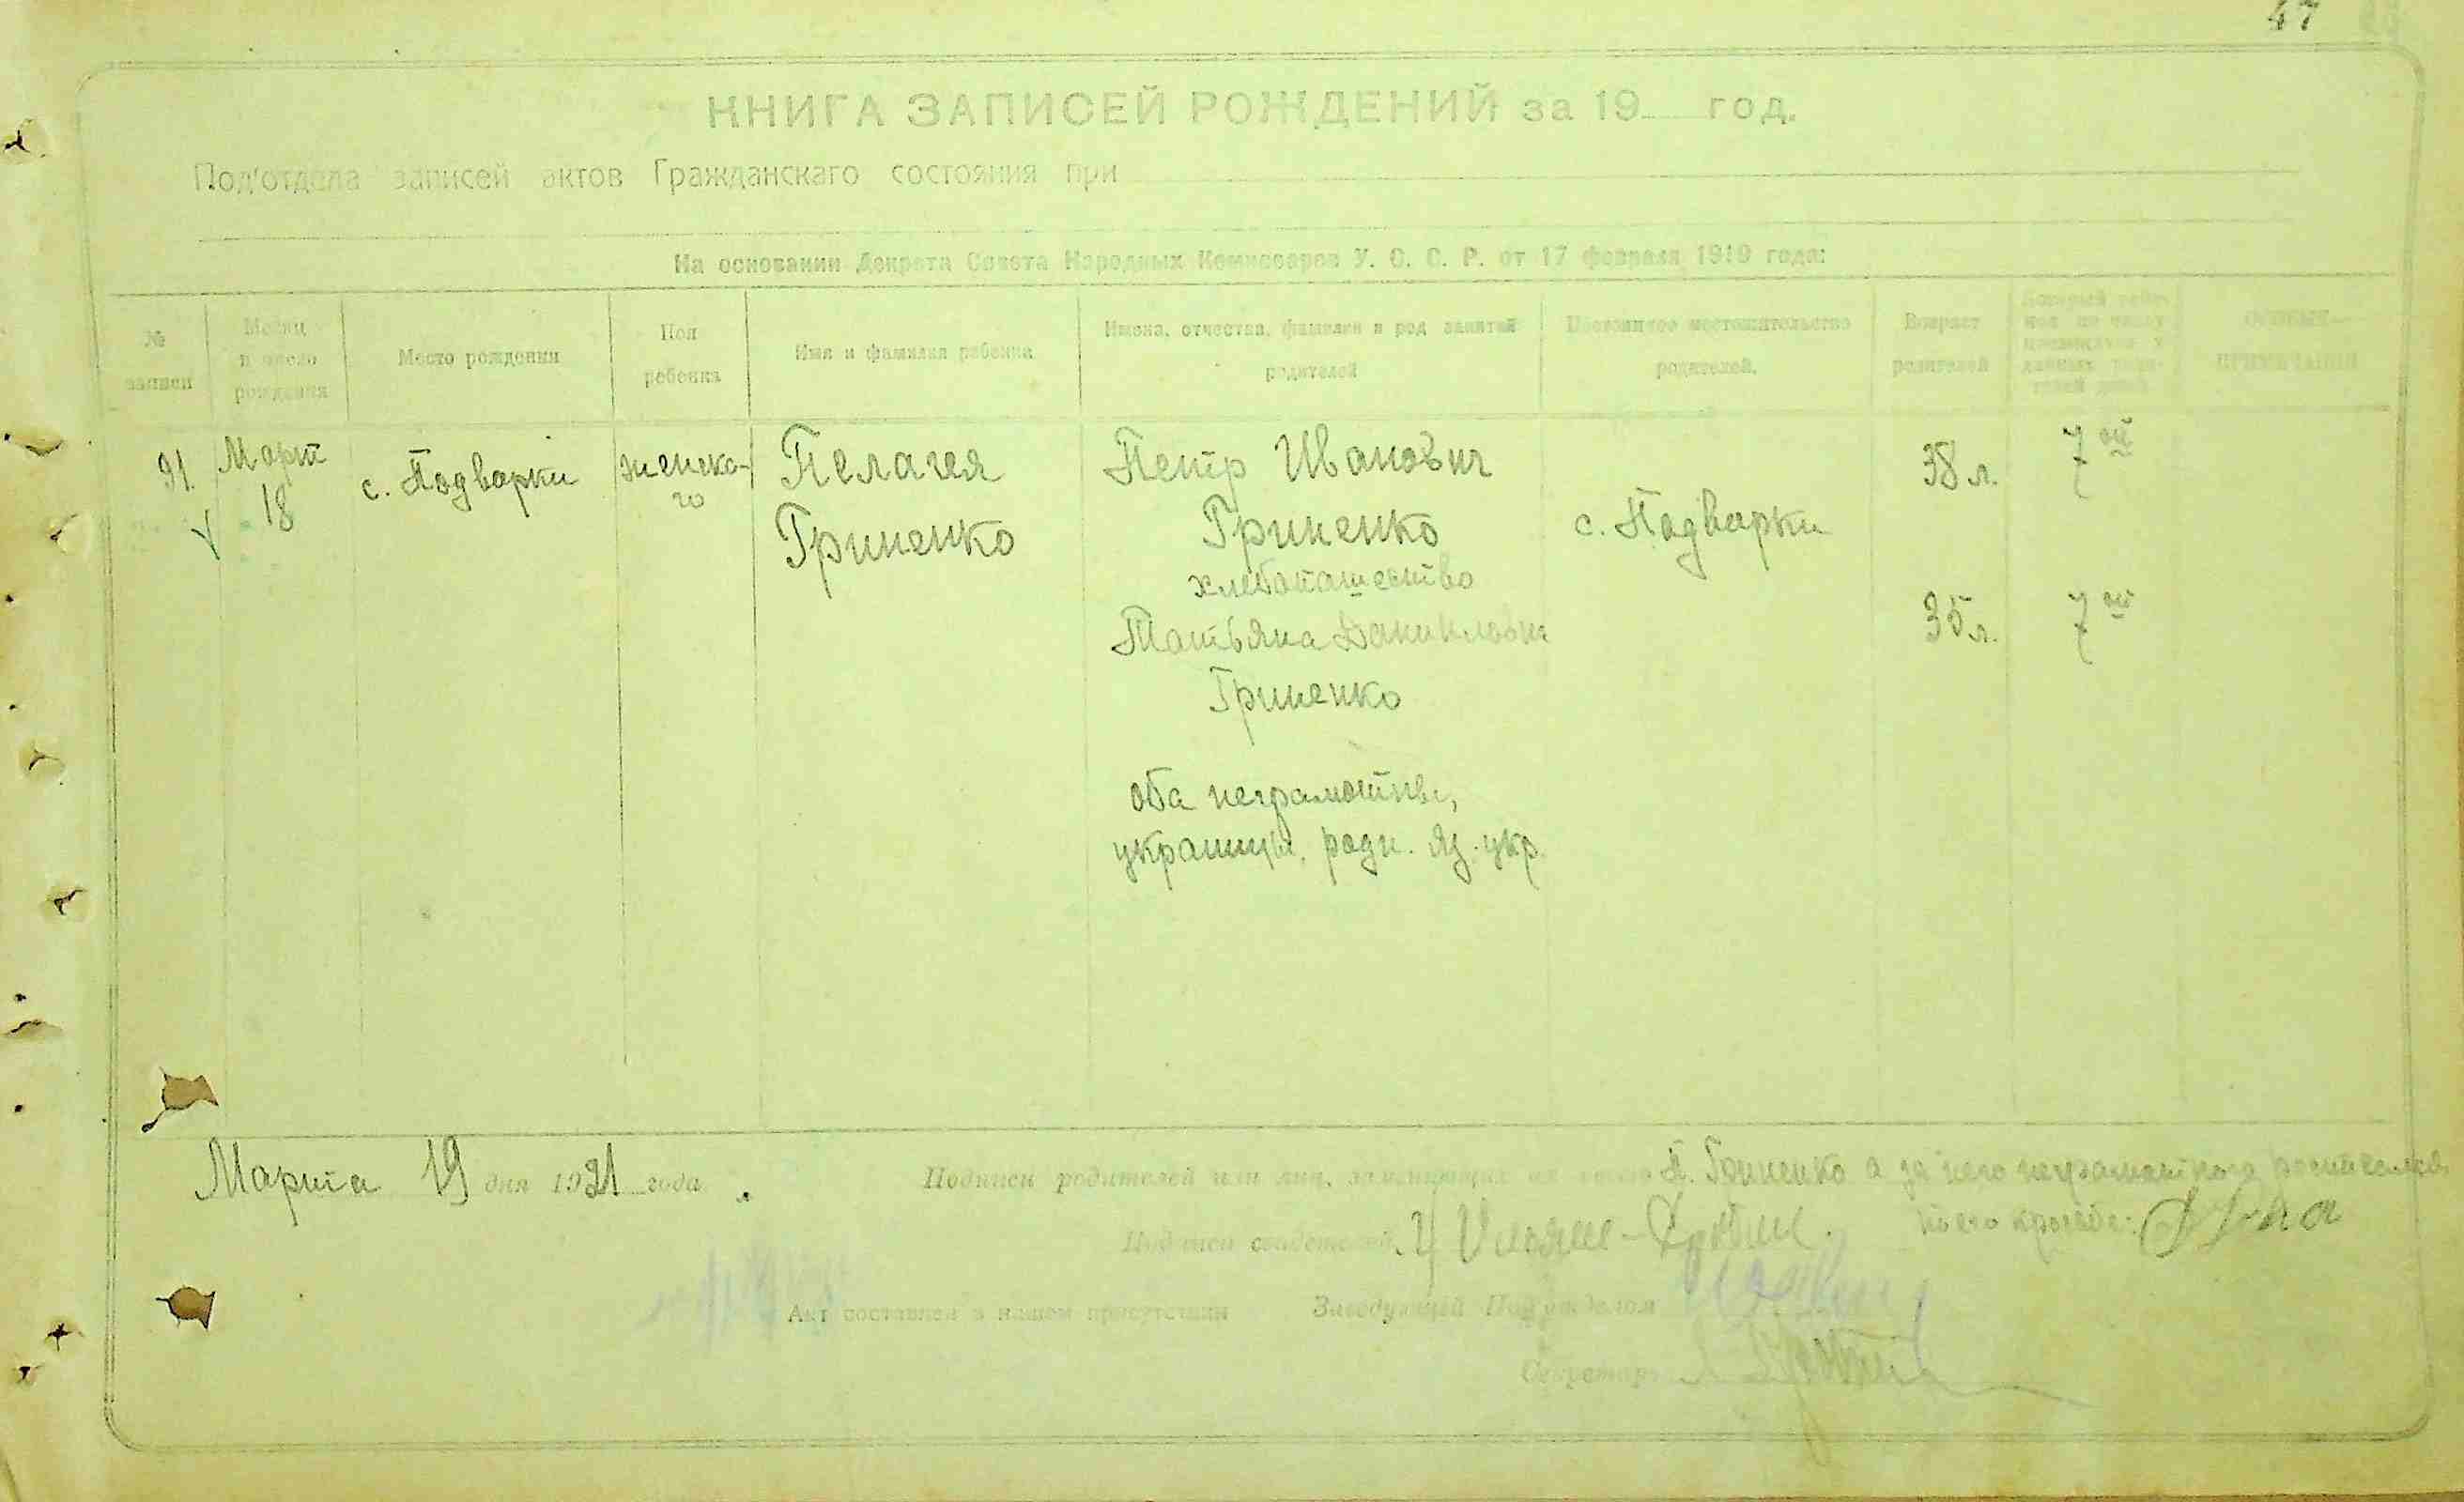 47
КНИГА ЗАПИСЕЙ РОЖДЕНИЙ за 19 год.
Под'отдела записей актов Гражданскаго состояния при
На основании Декрета Совета Народных Комиссаров У. С. С. Р. от 17 февраля 1919 года:
№ записи
Месяц и число рождения
Место рождения
Пол ребенка
Имя и фамилия ребенка
Имена, отчества, фамилии и род занятий родителей
Постоянное местожительство родителей.
Возраст родителей
ОСОБЫЕ ПРИМЕЧАНИЯ
91. Март 18
с. Подварки
женско-го
Пелагея
Гриненко
Петр Иванович
Гриненко
хлебопашество
Татьяна Даниловна
Гриненко
оба неграмотны,
украинцы, родн. яз. укр.
с. Подварки
38 л.
35 л.
7ой
7ой
Марта 19 дня 1921 года.
Подписи родителей или лиц, заменяющих их П. Гриненко а за него неграмотного
Подписи свидетелей
по его просьбе:
Акт составлен в нашем присутствии Заведующий Подотделом
Секретарь